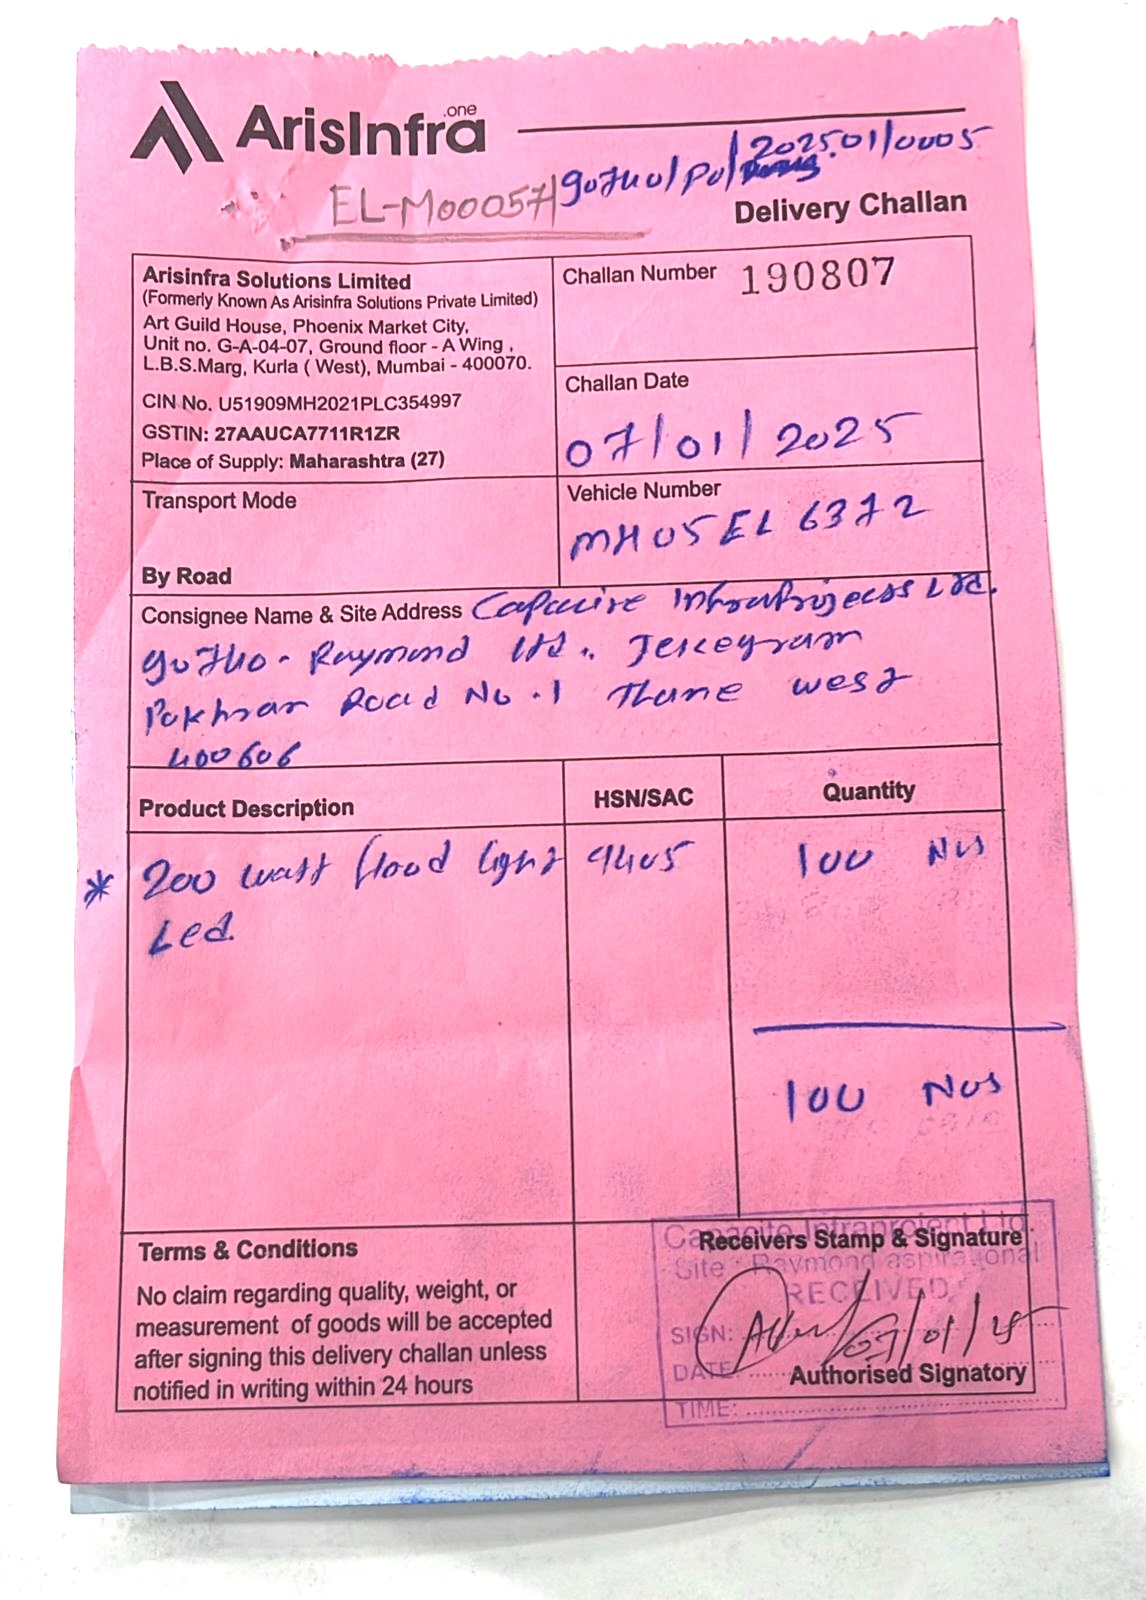 ArisInfra .one
EL-M00057 90740/PO/ 202501/0005
Delivery Challan
Arisinfra Solutions Limited
(Formerly Known As Arisinfra Solutions Private Limited)
Art Guild House, Phoenix Market City,
Unit no. G-A-04-07, Ground floor - A Wing ,
L.B.S.Marg, Kurla ( West), Mumbai - 400070.
CIN No. U51909MH2021PLC354997
GSTIN: 27AAUCA7711R1ZR
Place of Supply: Maharashtra (27)
Challan Number 190807
Challan Date
07/01/2025
Transport Mode
By Road
Vehicle Number
MH05EL 6372
Consignee Name & Site Address Capacite Infraprojects Ltd.
Raymond Ltd. Jekegram
Pokhran Road No.1 Thane west
400606
Product Description HSN/SAC Quantity
* 200 watt flood light 9405 100 Nos
Led.
100 Nos
Terms & Conditions
No claim regarding quality, weight, or
measurement of goods will be accepted
after signing this delivery challan unless
notified in writing within 24 hours
Capacite Infraproject Ltd.
Receivers Stamp & Signature
Site : Raymond aspirational
RECEIVED
SIGN: /01/25
DATE:
Authorised Signatory
TIME: